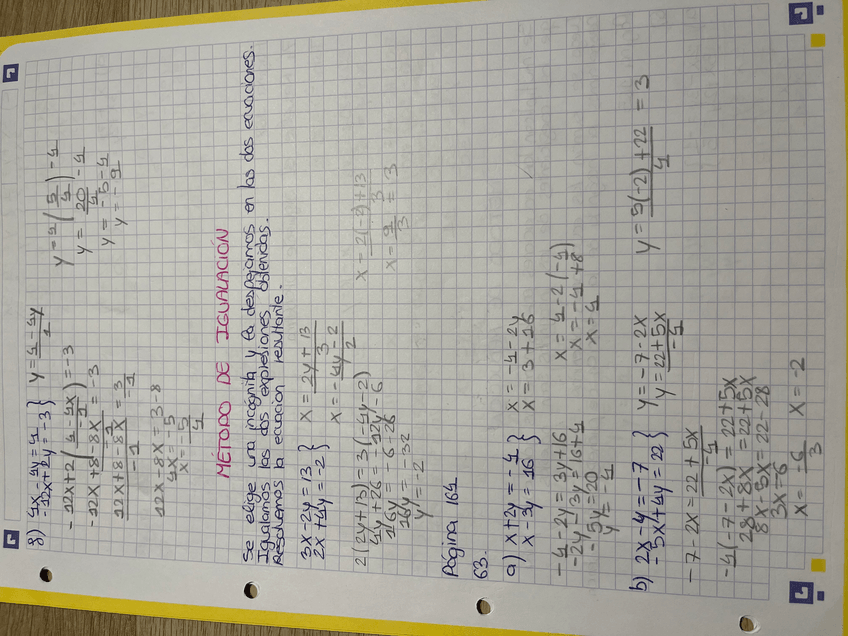 8) 4x - 4y = 4 } y = 4 - 4y / 1
-12x + 2y = -3 }
-12x + 2(4 - 4x / -1) = -3
-12x + 8 - 8x / -1 = -3
12x + 8 - 8x / -1 = 3 / -1
12x - 8x = 3 - 8
4x = -5
x = -5 / 4
y = 4(5 / 4) - 4
y = 20 / 4 - 4
y = -5 - 4
y = -9
MÉTODO DE IGUALACIÓN
Se elige una incógnita y la despejamos en las dos ecuaciones.
Igualamos las dos expresiones obtenidas.
Resolvemos la ecuación resultante.
3x - 2y = 13 } x = 2y + 13 / 3
2x + 4y = -2 } x = -4y - 2 / 2
2(2y + 13) = 3(-4y - 2)
4y + 26 = -12y - 6
16y = -6 - 26
16y = -32
y = -2
x = 2(-2) + 13 / 3
x = 9 / 3 = 3
Página 164
63.
a) x + 2y = -4 } x = -4 - 2y
x - 3y = 16 } x = 3 + 16
-4 - 2y = 3y + 16
-2y - 3y = 16 + 4
-5y = 20
y = -4
x = 4 - 2(-4)
x = -4 + 8
x = 4
b) 2x - y = -7 } y = -7 - 2x
-5x + 4y = 22 } y = 22 + 5x / -4
-7 - 2x = 22 + 5x / -4
-4(-7 - 2x) = 22 + 5x
28 + 8x = 22 + 5x
8x - 5x = 22 - 28
3x = 6
x = -6 / 3 x = -2
y = 5(-2) + 22 / 4 = 3